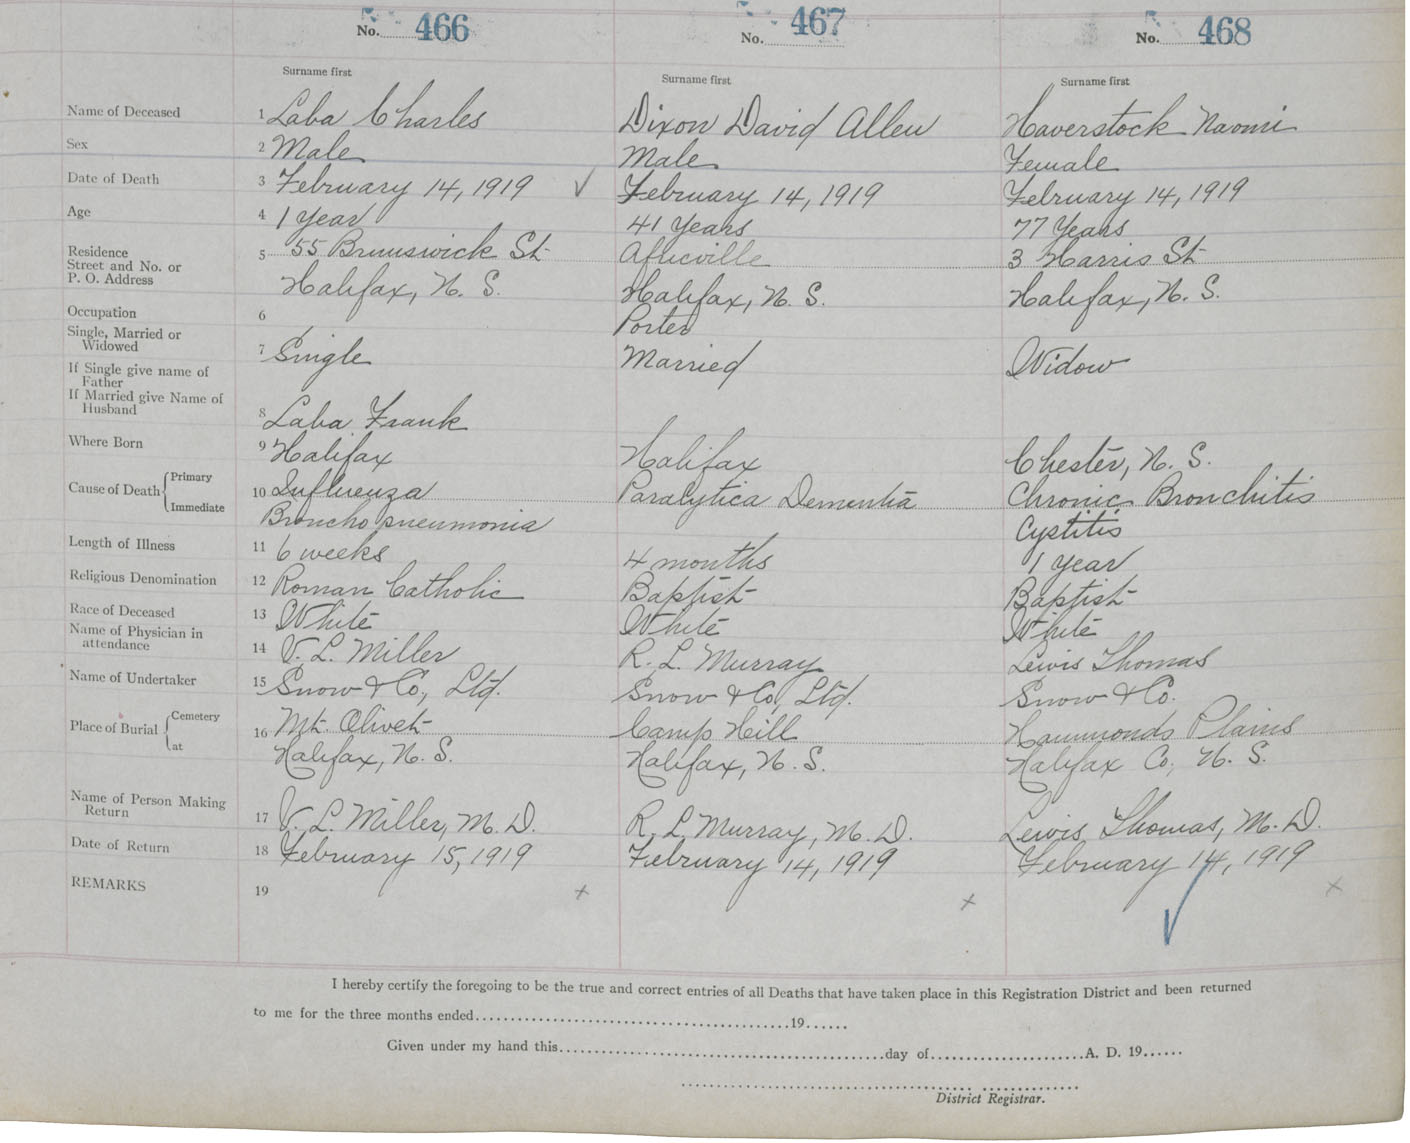 No. 466 No. 467 No. 468
Surname first Surname first Surname first
Name of Deceased 1 Laba Charles Dixon David Allen Haverstock Naomi
Sex 2 Male Male Female
Date of Death 3 February 14, 1919 ✓ February 14, 1919 February 14, 1919
Age 4 1 Year 41 Years 77 Years
Residence Street and No. or P. O. Address 5 55 Brunswick St Africville 3 Harris St
Halifax, N. S. Halifax, N. S. Halifax, N. S.
Occupation 6 Porter
Single, Married or Widowed 7 Single Married Widow
If Single give name of Father
If Married give Name of Husband 8 Laba Frank
Where Born 9 Halifax Halifax Chester, N. S.
Cause of Death Primary 10 Influenza Paralytica Dementia Chronic Bronchitis
Immediate Broncho pneumonia Cystitis
Length of Illness 11 6 weeks 4 months 1 year
Religious Denomination 12 Roman Catholic Baptist Baptist
Race of Deceased 13 White White White
Name of Physician in attendance 14 V. L. Miller R. L. Murray Lewis Thomas
Name of Undertaker 15 Snow & Co, Ltd. Snow & Co, Ltd. Snow & Co.
Place of Burial Cemetery 16 Mt. Olivet Camp Hill Hammonds Plains
at Halifax, N. S. Halifax, N. S. Halifax Co, N. S.
Name of Person Making Return 17 V. L. Miller, M. D. R. L. Murray, M. D. Lewis Thomas, M. D.
Date of Return 18 February 15, 1919 February 14, 1919 February 14, 1919
REMARKS 19 x x ✓ x
I hereby certify the foregoing to be the true and correct entries of all Deaths that have taken place in this Registration District and been returned
to me for the three months ended..........19......
Given under my hand this..........day of..........A. D. 19......
District Registrar.